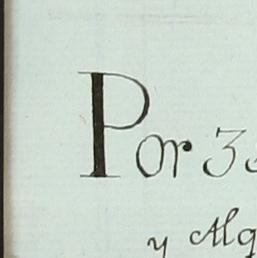 Por 3
y Alg